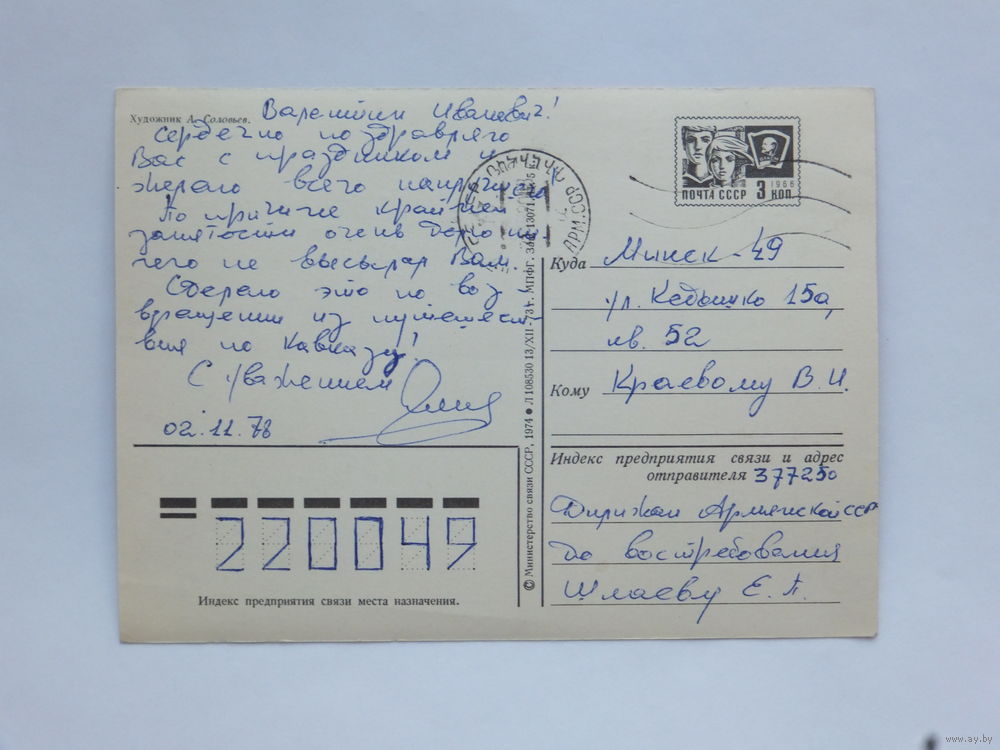 Художник А. Соловьев.
Валентин Иванович!
Сердечно поздравляю
Вас с праздником и
желаю всего наилучшего
По причине крайней
занятости очень долго ни
чего не высылал Вам.
Сделаю это по воз
вращении из путешест-
вия по Кавказу!
С уважением
02.11.78
220049
Индекс предприятия связи места назначения.
© Министерство связи СССР, 1974 ● Л 108530 13/XII - 73 г. МПФГ. Зак. 13071.
АРМ.ССР
ПОЧТА СССР 3 КОП.
1966
Куда Минск-49
ул. Кедышко 15а,
кв. 52
Кому Краевому В.И.
Индекс предприятия связи и адрес
отправителя 377250
Дилижан Армянской ССР
До востребования
Шлаеву Е.П.
www.ay.by